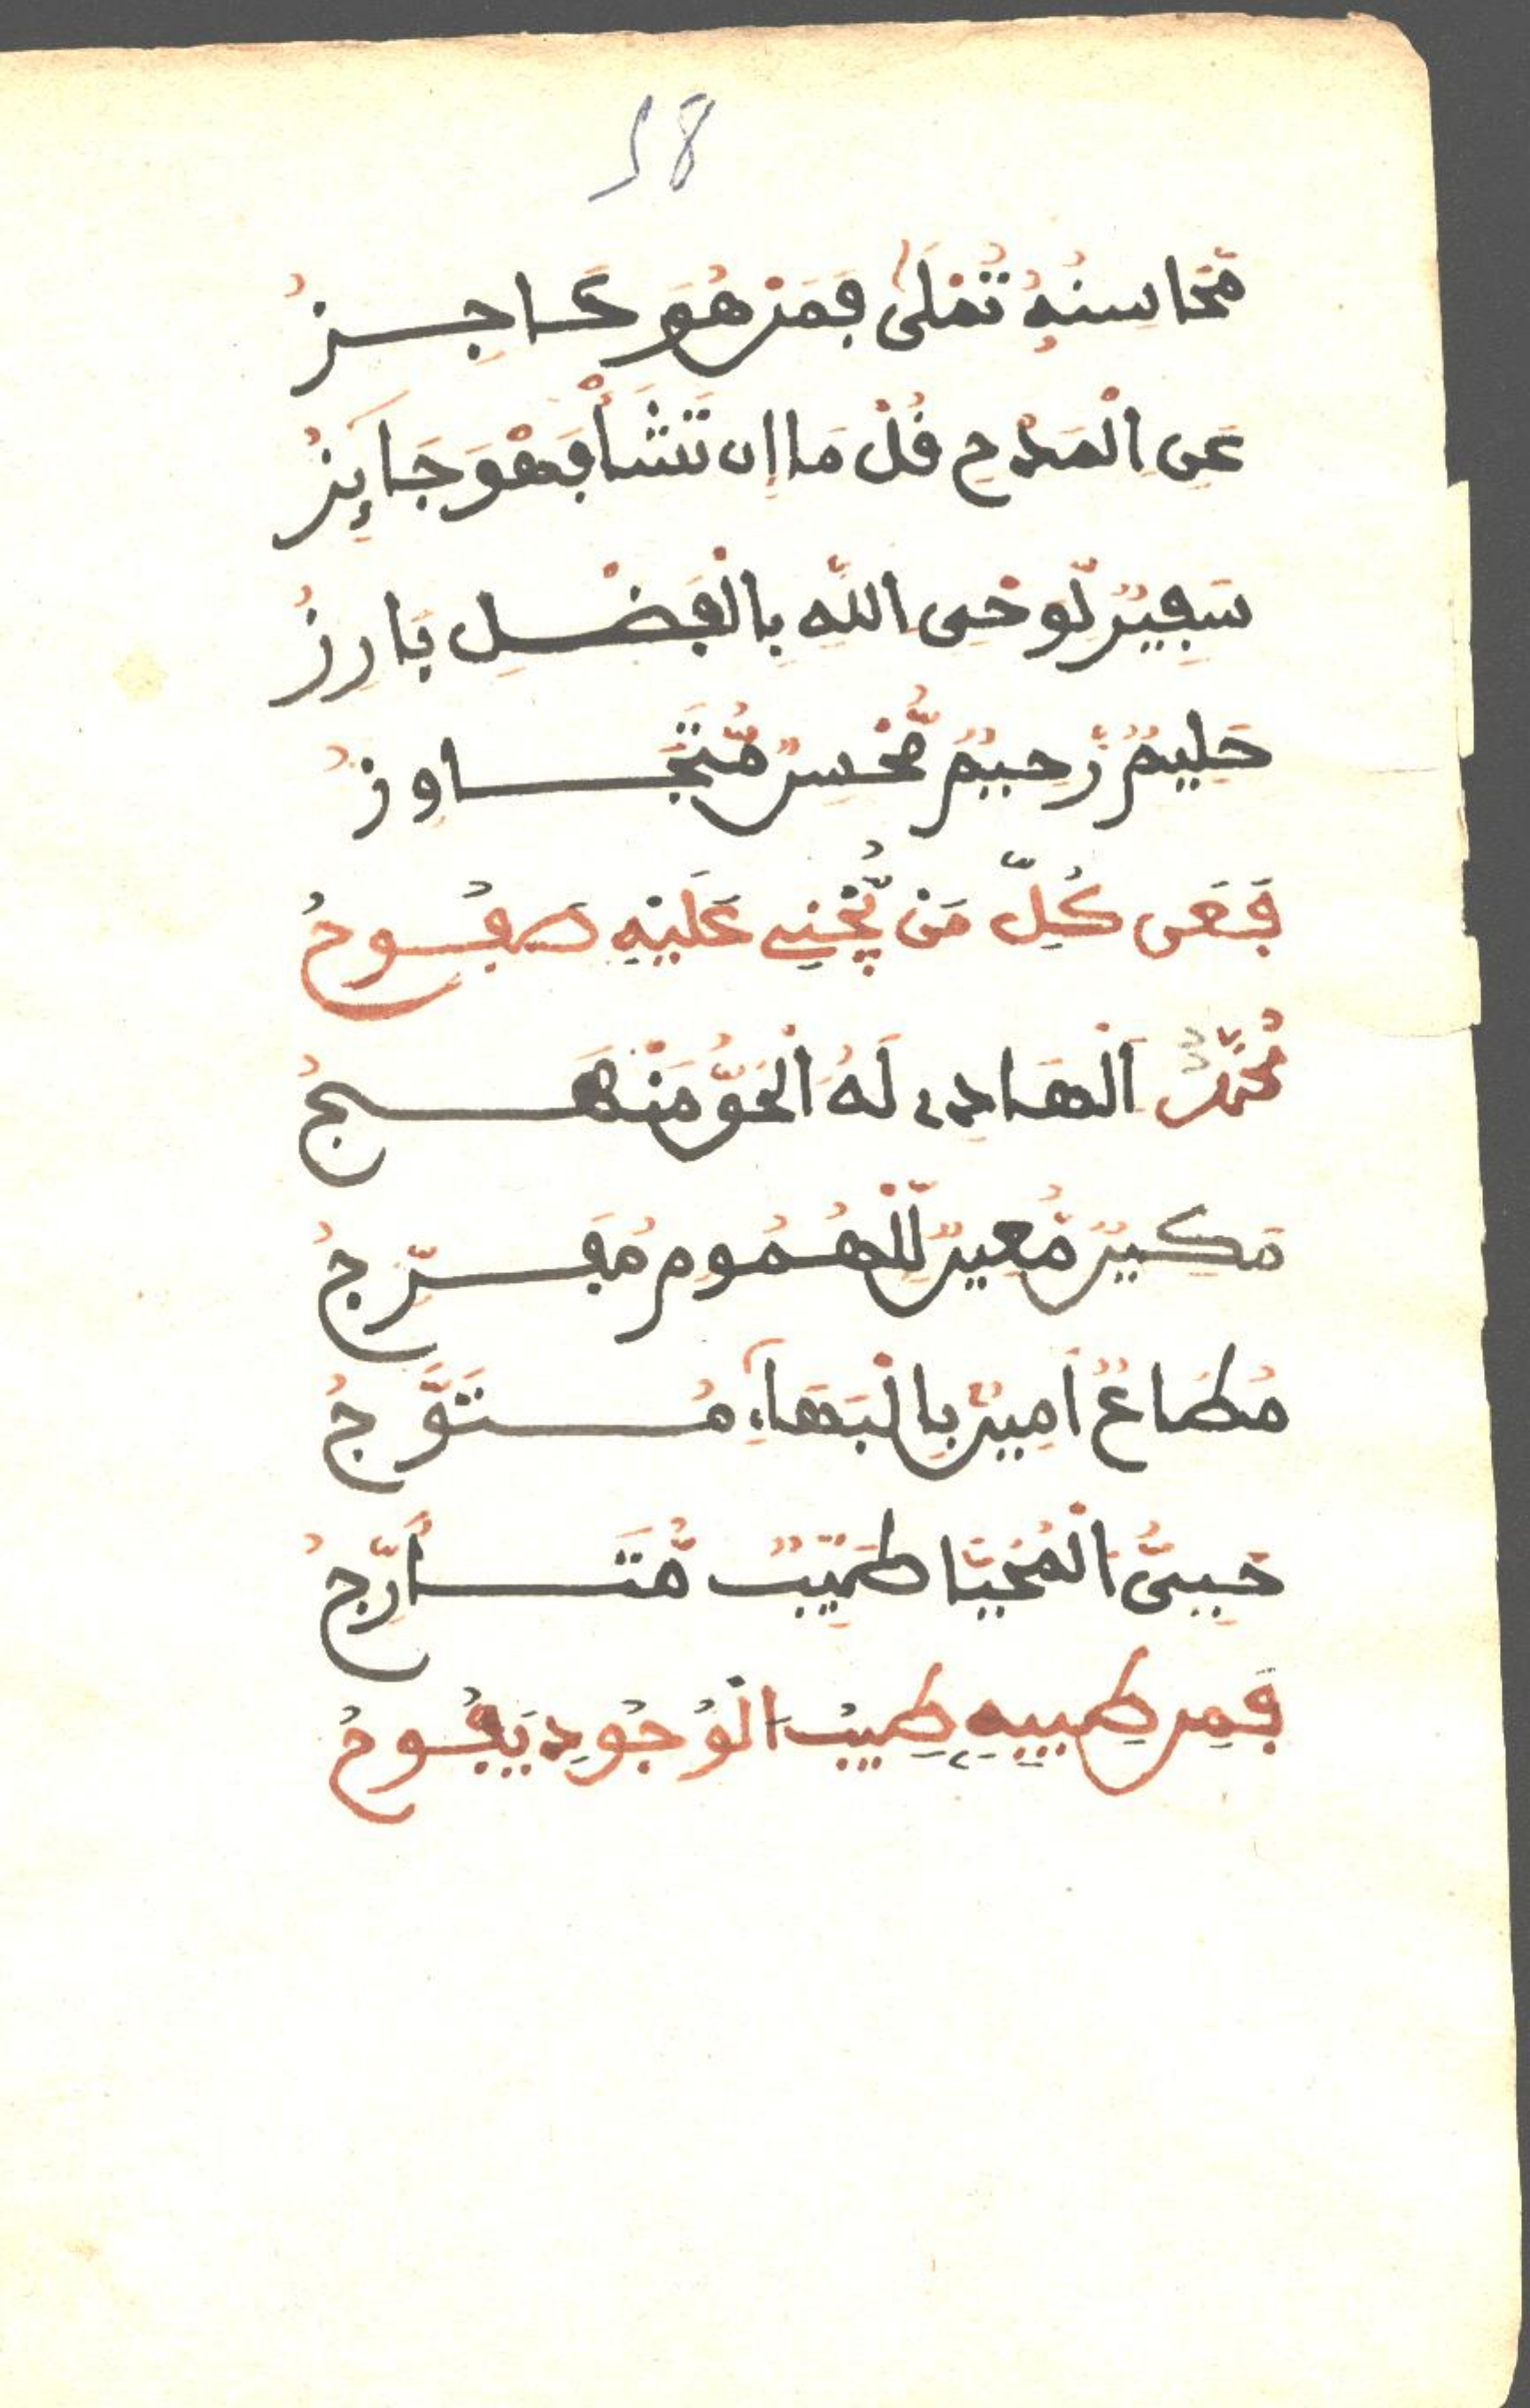 58
مَّحَاسِنُهُ تُمْلَىٰ فَمَنْ هُوَ عَاجِزُ
عَنِ الْمَدْحِ قُلْ مَا إِن تَشَأْ فَهْوَ جَائِزُ
سَفِيرٌ لِّوَحْيِ اللَّهِ بِالْفَضْلِ بَارِزُ
حَلِيمٌ رَّحِيمٌ مُّحْسِنٌ مُّتَجَاوِزُ
فَعَن كُلِّ مَن يَّجْنِي عَلَيْهِ صَفُوحُ
مُحَمَّدٌ الْهَادِي لَهُ الْحَقُّ مَنْهَجُ
مَكِينٌ مُّعِينٌ لِّلْهُمُومِ مُفَرِّجُ
مُطَاعٌ أَمِينٌ بِالْبَهَاءِ مُتَوَّجُ
حَيِيُّ الْمُحَيَّا طَيِّبٌ مُّتَأَرِّجُ
فَمِن طِيبِهِ طِيبُ الْوُجُودِ يَفُوحُ